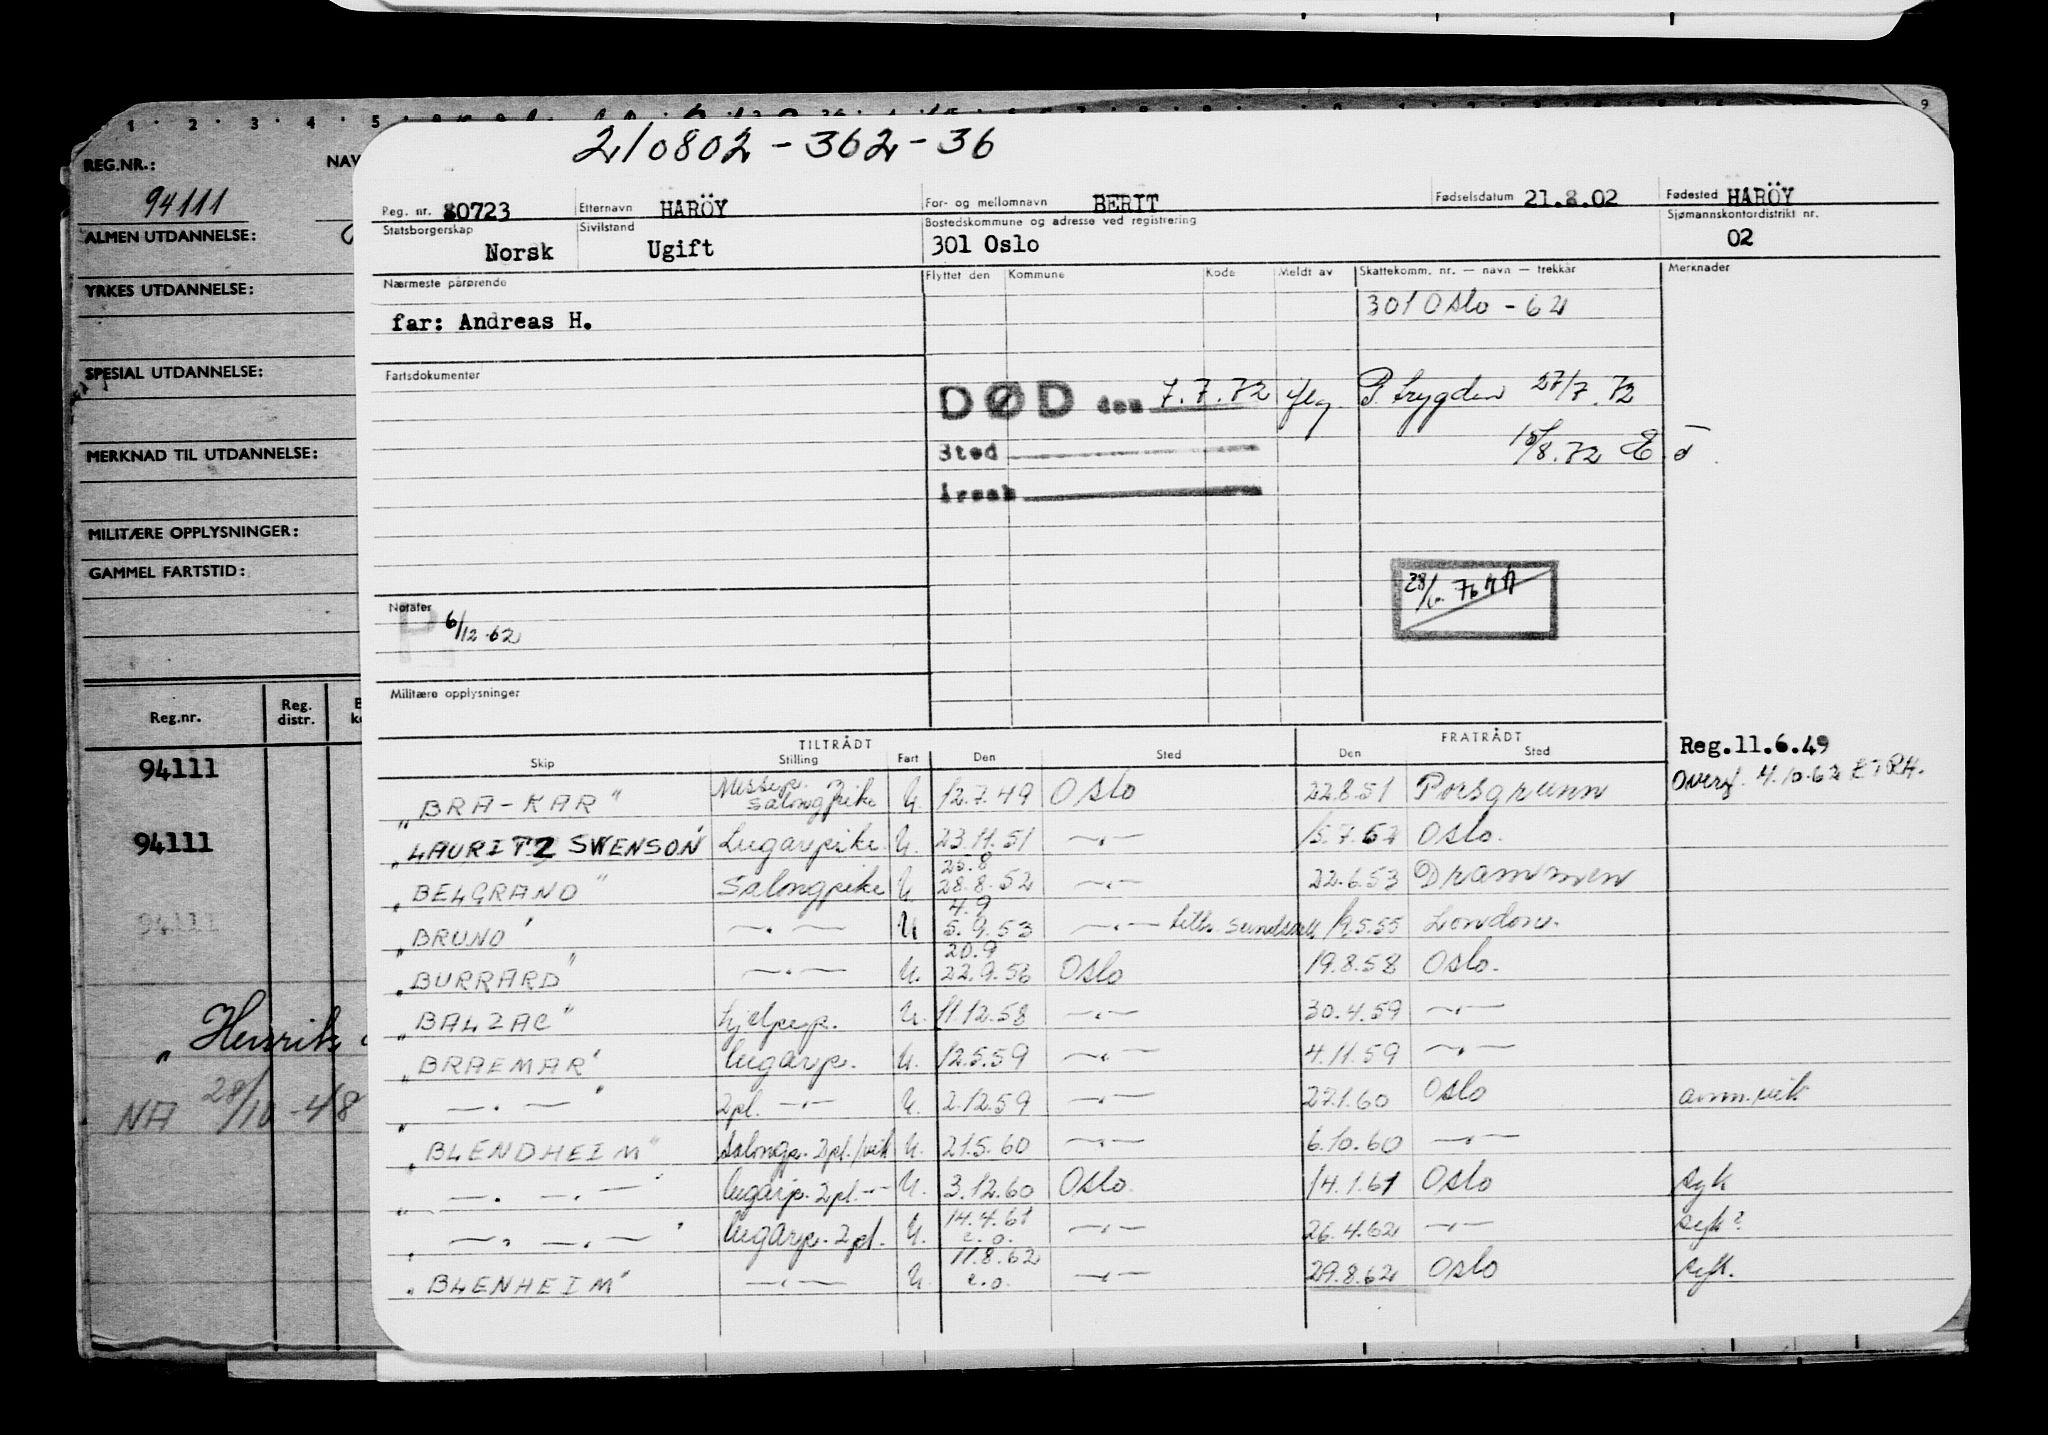 210802-362-36
REG.NR.:
NAV
94111
ALMEN UTDANNELSE:
YRKES UTDANNELSE:
SPESIAL UTDANNELSE:
MERKNAD TIL UTDANNELSE:
MILITÆRE OPPLYSNINGER:
GAMMEL FARTSTID:
Reg.nr. Reg. distr.
94111
94111
94111
„ Henrik
NA 28/10-48
Reg. nr. 80723 Etternavn HARÖY For- og mellomnavn BERIT Fødselsdatum 21.8.02 Fødested HARÖY
Statsborgerskap Norsk Sivilstand Ugift Bostedskommune og adresse ved registrering 301 Oslo Sjømannskontordistrikt nr. 02
Nærmeste pårørende Flyttet den Kommune Kode Meldt av Skattekomm. nr. — navn — trekkår Merknader
far: Andreas H. 301 Oslo - 62
Fartsdokumenter
DØD den 7.7.72 iflg. P. trygden 27/7.72
Sted 15/8.72
Årsak
28/6-76
Notater
P 6/12-62
Militære opplysninger
TILTRÅDT FRATRÅDT
Skip Stilling Fart Den Sted Den Sted
Reg.11.6.49
Overf. 4.10.62
„BRA-KAR" Messep. Salongpike U. 12.7.49 Oslo 22.8.51 Porsgrunn
„LAURITZ SWENSON" Lugarpike U. 23.11.51 —„— 15.7.52 Oslo.
„BELGRANO" Salongpike U 25.8 28.8.52 —„— 22.6.53 Drammen
„BRUNO" —„— U 4.9 5.9.53 —„— 5.55 London.
„BURRARD" —„— U. 20.9 22.9.56 Oslo 19.8.58 Oslo.
„BALZAC" Hjelpep. U. 11.12.58 —„— 30.4.59 —„—
„BRAEMAR" lugarp. U. 12.5.59 —„— 4.11.59 —„—
„—„—" 2pl. —„— U. 2.12.59 —„— 27.1.60 Oslo ann.vik
„BLENDHEIM" Salongp. 2pl./vik U. 21.5.60 —„— 6.10.60 —„—
„—„—" lugarp. 2pl. —„— U. 3.12.60 Oslo. 14.1.61 Oslo syk
„—„—" lugarp. 2pl. U. 14.4.61 e.o. —„— 26.4.62 —„— syk?
„BLENHEIM" —„— U. 11.8.62 e.o. —„— 29.8.62 Oslo syk.